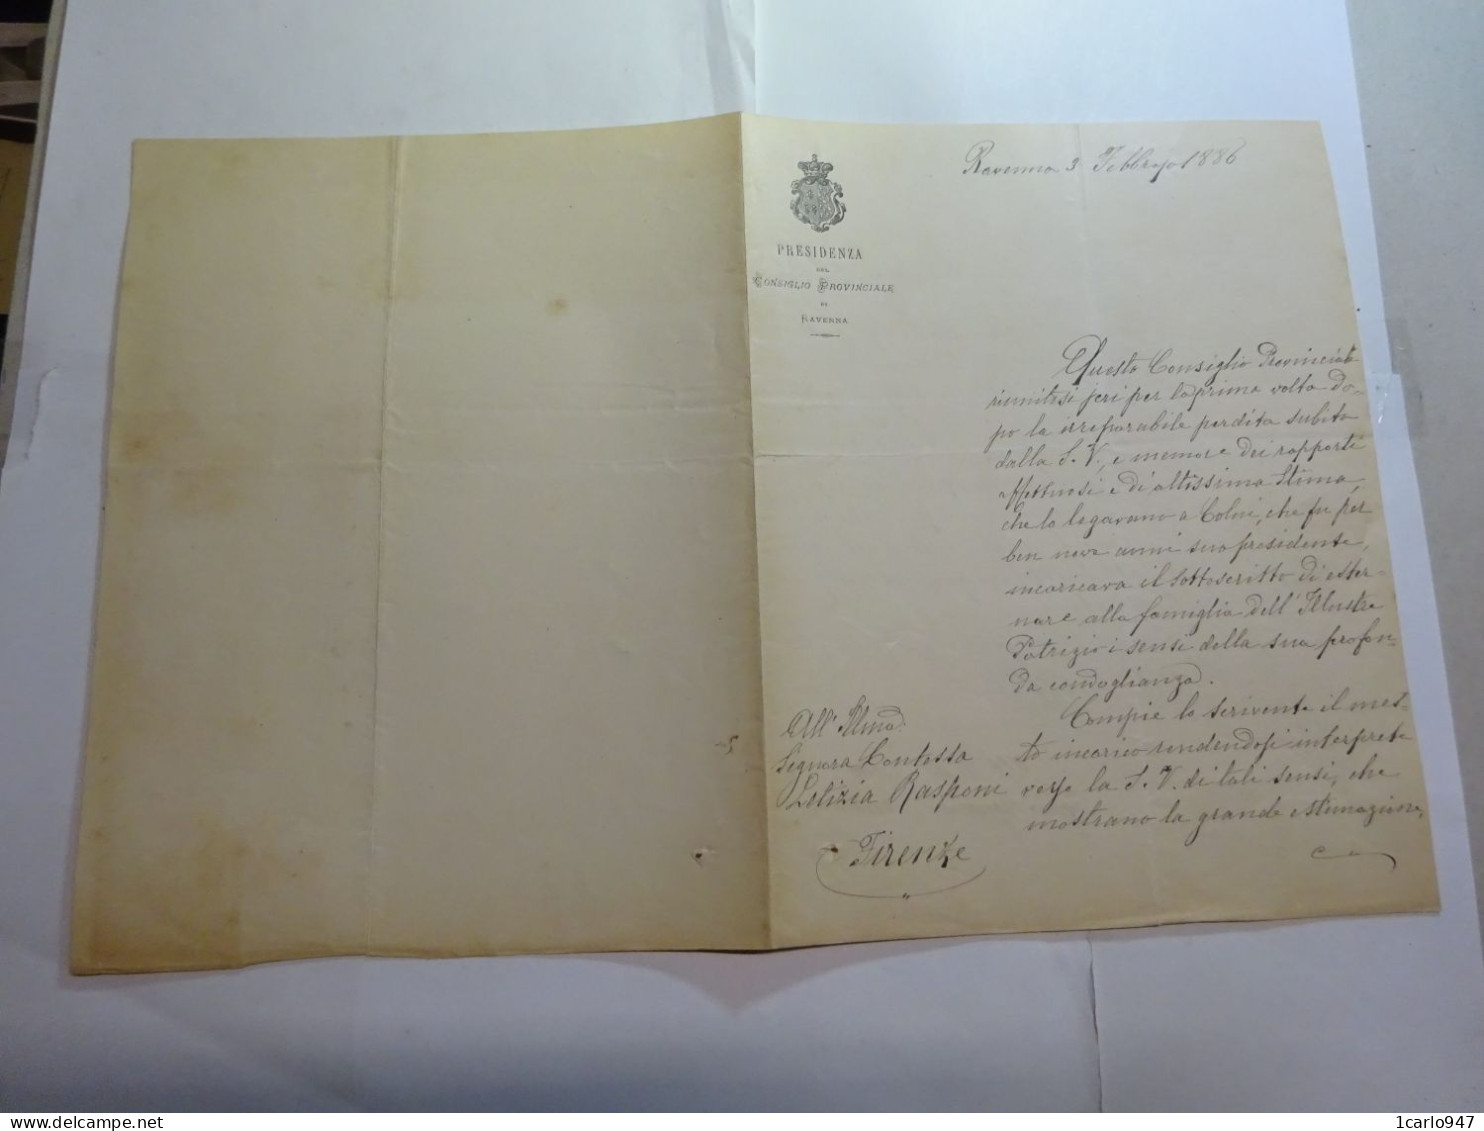 Ravenna 3 Febbrajo 1886
PRESIDENZA
DEL
CONSIGLIO PROVINCIALE
DI
RAVENNA
Questo Consiglio Provinciale
riunitosi jeri per la prima volta do-
po la irreparabile perdita subita
dalla S. V., e memore dei rapporti
affettuosi e di altissima stima,
che lo legavano a Colui, che fu per
ben nove anni suo presidente,
incaricava il sottoscritto di ester-
nare alla famiglia dell'Illustre
Patrizio i sensi della sua profon-
da condoglianza.
Compie lo scrivente il mes-
to incarico rendendosi interprete
verso la S. V. di tali sensi, che
mostrano la grande estimazione,
All' Illma
Signora Contessa
Letizia Rasponi
Firenze
delcampe.net
1carlo947